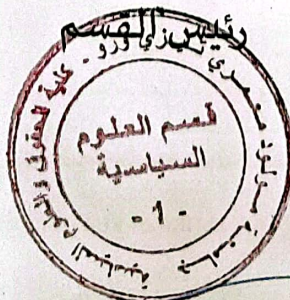 رئيس القسم
جامعة مولود معمري تيزي وزو - كلية الحقوق والعلوم السياسية
قسم العلوم
السياسية
- 1 -